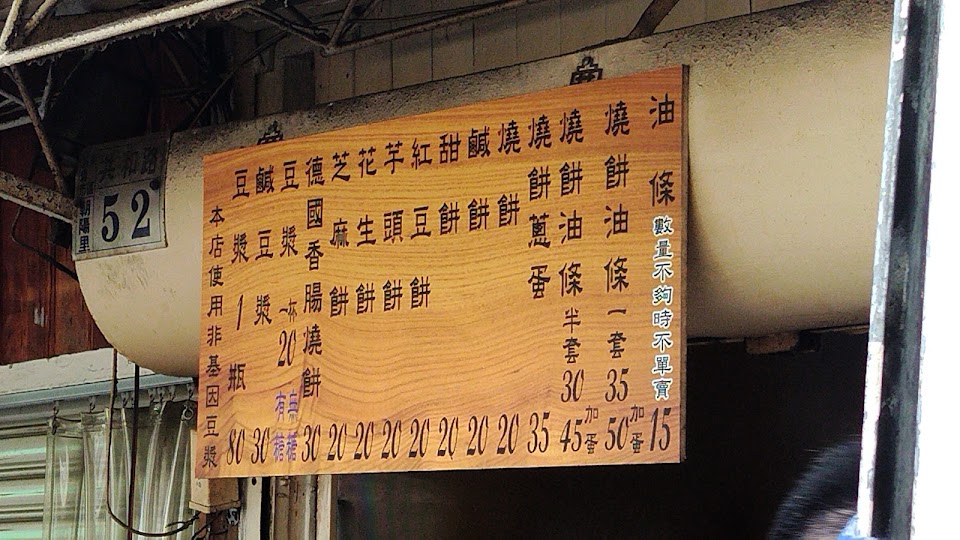 油條 數量不夠時不單賣 15
燒餅油條一套 35 加蛋 50
燒餅油條半套 30 加蛋 45
燒餅蔥蛋 35
燒餅 20
鹹餅 20
甜餅 20
紅豆餅 20
芋頭餅 20
花生餅 20
芝麻餅 20
德國香腸燒餅 30
豆漿一杯 20 無糖 有糖
鹹豆漿 30
豆漿1瓶 80
本店使用非基因豆漿
共和路
朝陽里
52